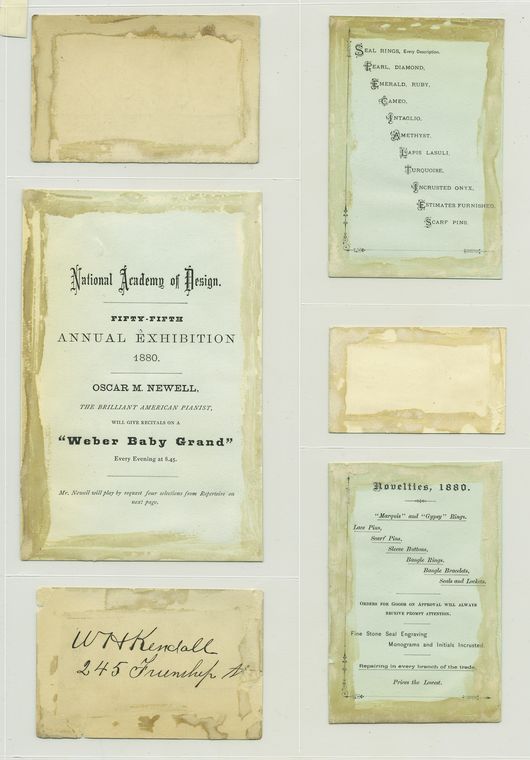 National Academy of Design.
FIFTY-FIFTH
ANNUAL EXHIBITION
1880.
OSCAR M. NEWELL,
THE BRILLIANT AMERICAN PIANIST,
WILL GIVE RECITALS ON A
"Weber Baby Grand"
Every Evening at 8.45.
Mr. Newell will play by request four selections from Repertoire on
next page.
W H Kendall
245 Frienship St
SEAL RINGS, Every Description.
PEARL, DIAMOND,
EMERALD, RUBY,
CAMEO,
INTAGLIO,
AMETHYST,
LAPIS LASULI,
TURQUOISE,
INCRUSTED ONYX,
ESTIMATES FURNISHED.
SCARF PINS.
Novelties, 1880.
"Marquis" and "Gypsy" Rings.
Lace Pins,
Scarf Pins,
Sleeve Buttons,
Bangle Rings.
Bangle Bracelets,
Seals and Lockets.
ORDERS FOR GOODS ON APPROVAL WILL ALWAYS
RECEIVE PROMPT ATTENTION.
Fine Stone Seal Engraving
Monograms and Initials Incrusted.
Repairing in every branch of the trade.
Prices the Lowest.